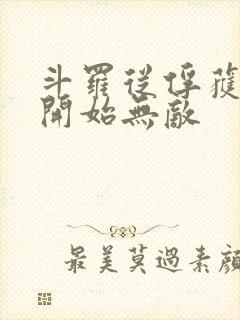 斗羅從俘獲
開始無敵
最美莫過素顏